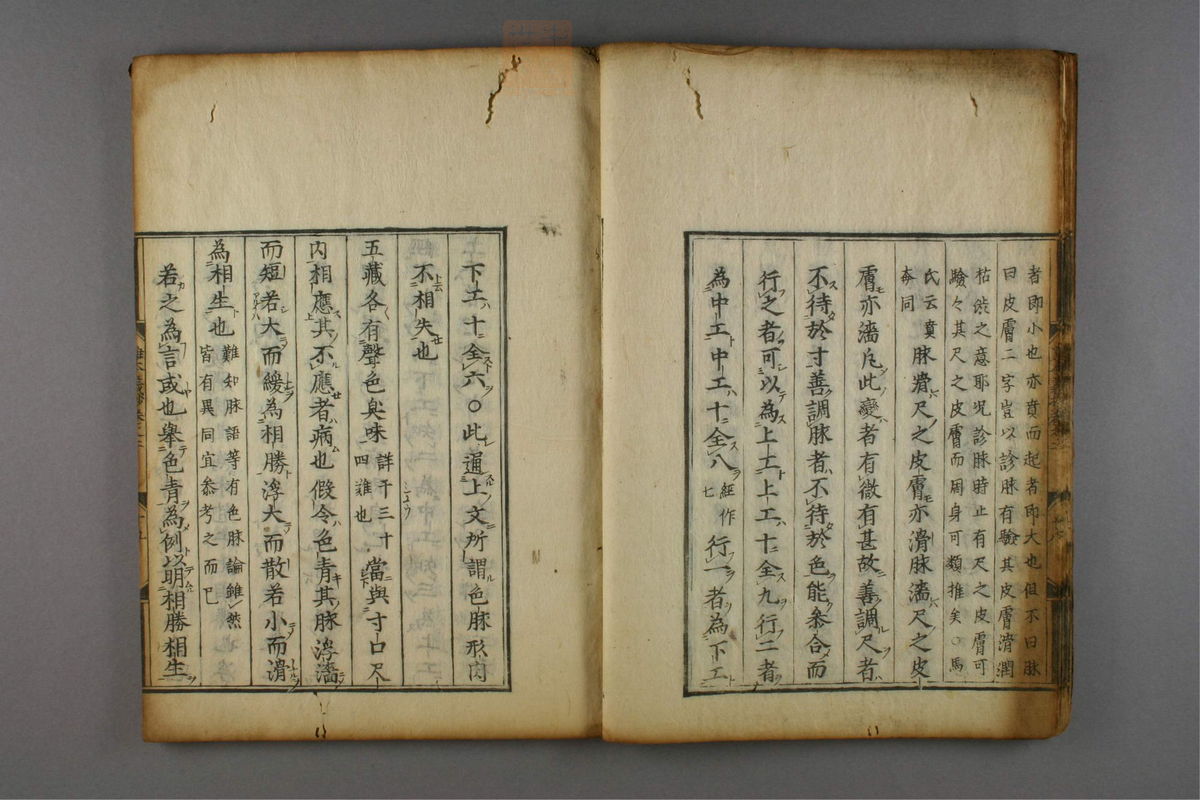 者即小也亦賁而起者即大也但不曰脉
曰皮膚二字豈以診脉有驗其皮膚滑潤
枯澁之意耶况診脉時止有尺之皮膚可
驗々其尺之皮膚而周身可類推矣○馬
氏云賁
奔同
脉滑尺之皮膚亦滑脉濇尺之皮
膚亦濇凡此變者有微有甚故善調尺者
不待於寸善調脉者不待於色能參合而
行之者可以為上工上工十全九行二者
為中工中工十全八
經作
七
行一者為下工
下工十全六○此通上文所謂色脉形肉
不相失也
五藏各有聲色臭味
詳于三十
四難也
當與寸口尺
内相應其不應者病也假令色青其脉浮濇
而短若大而緩為相勝浮大而散若小而滑
為相生也
難知脉語等有色脉論雖然
皆有異同宜參考之而已
若之為言或也舉色青為例以明相勝相生